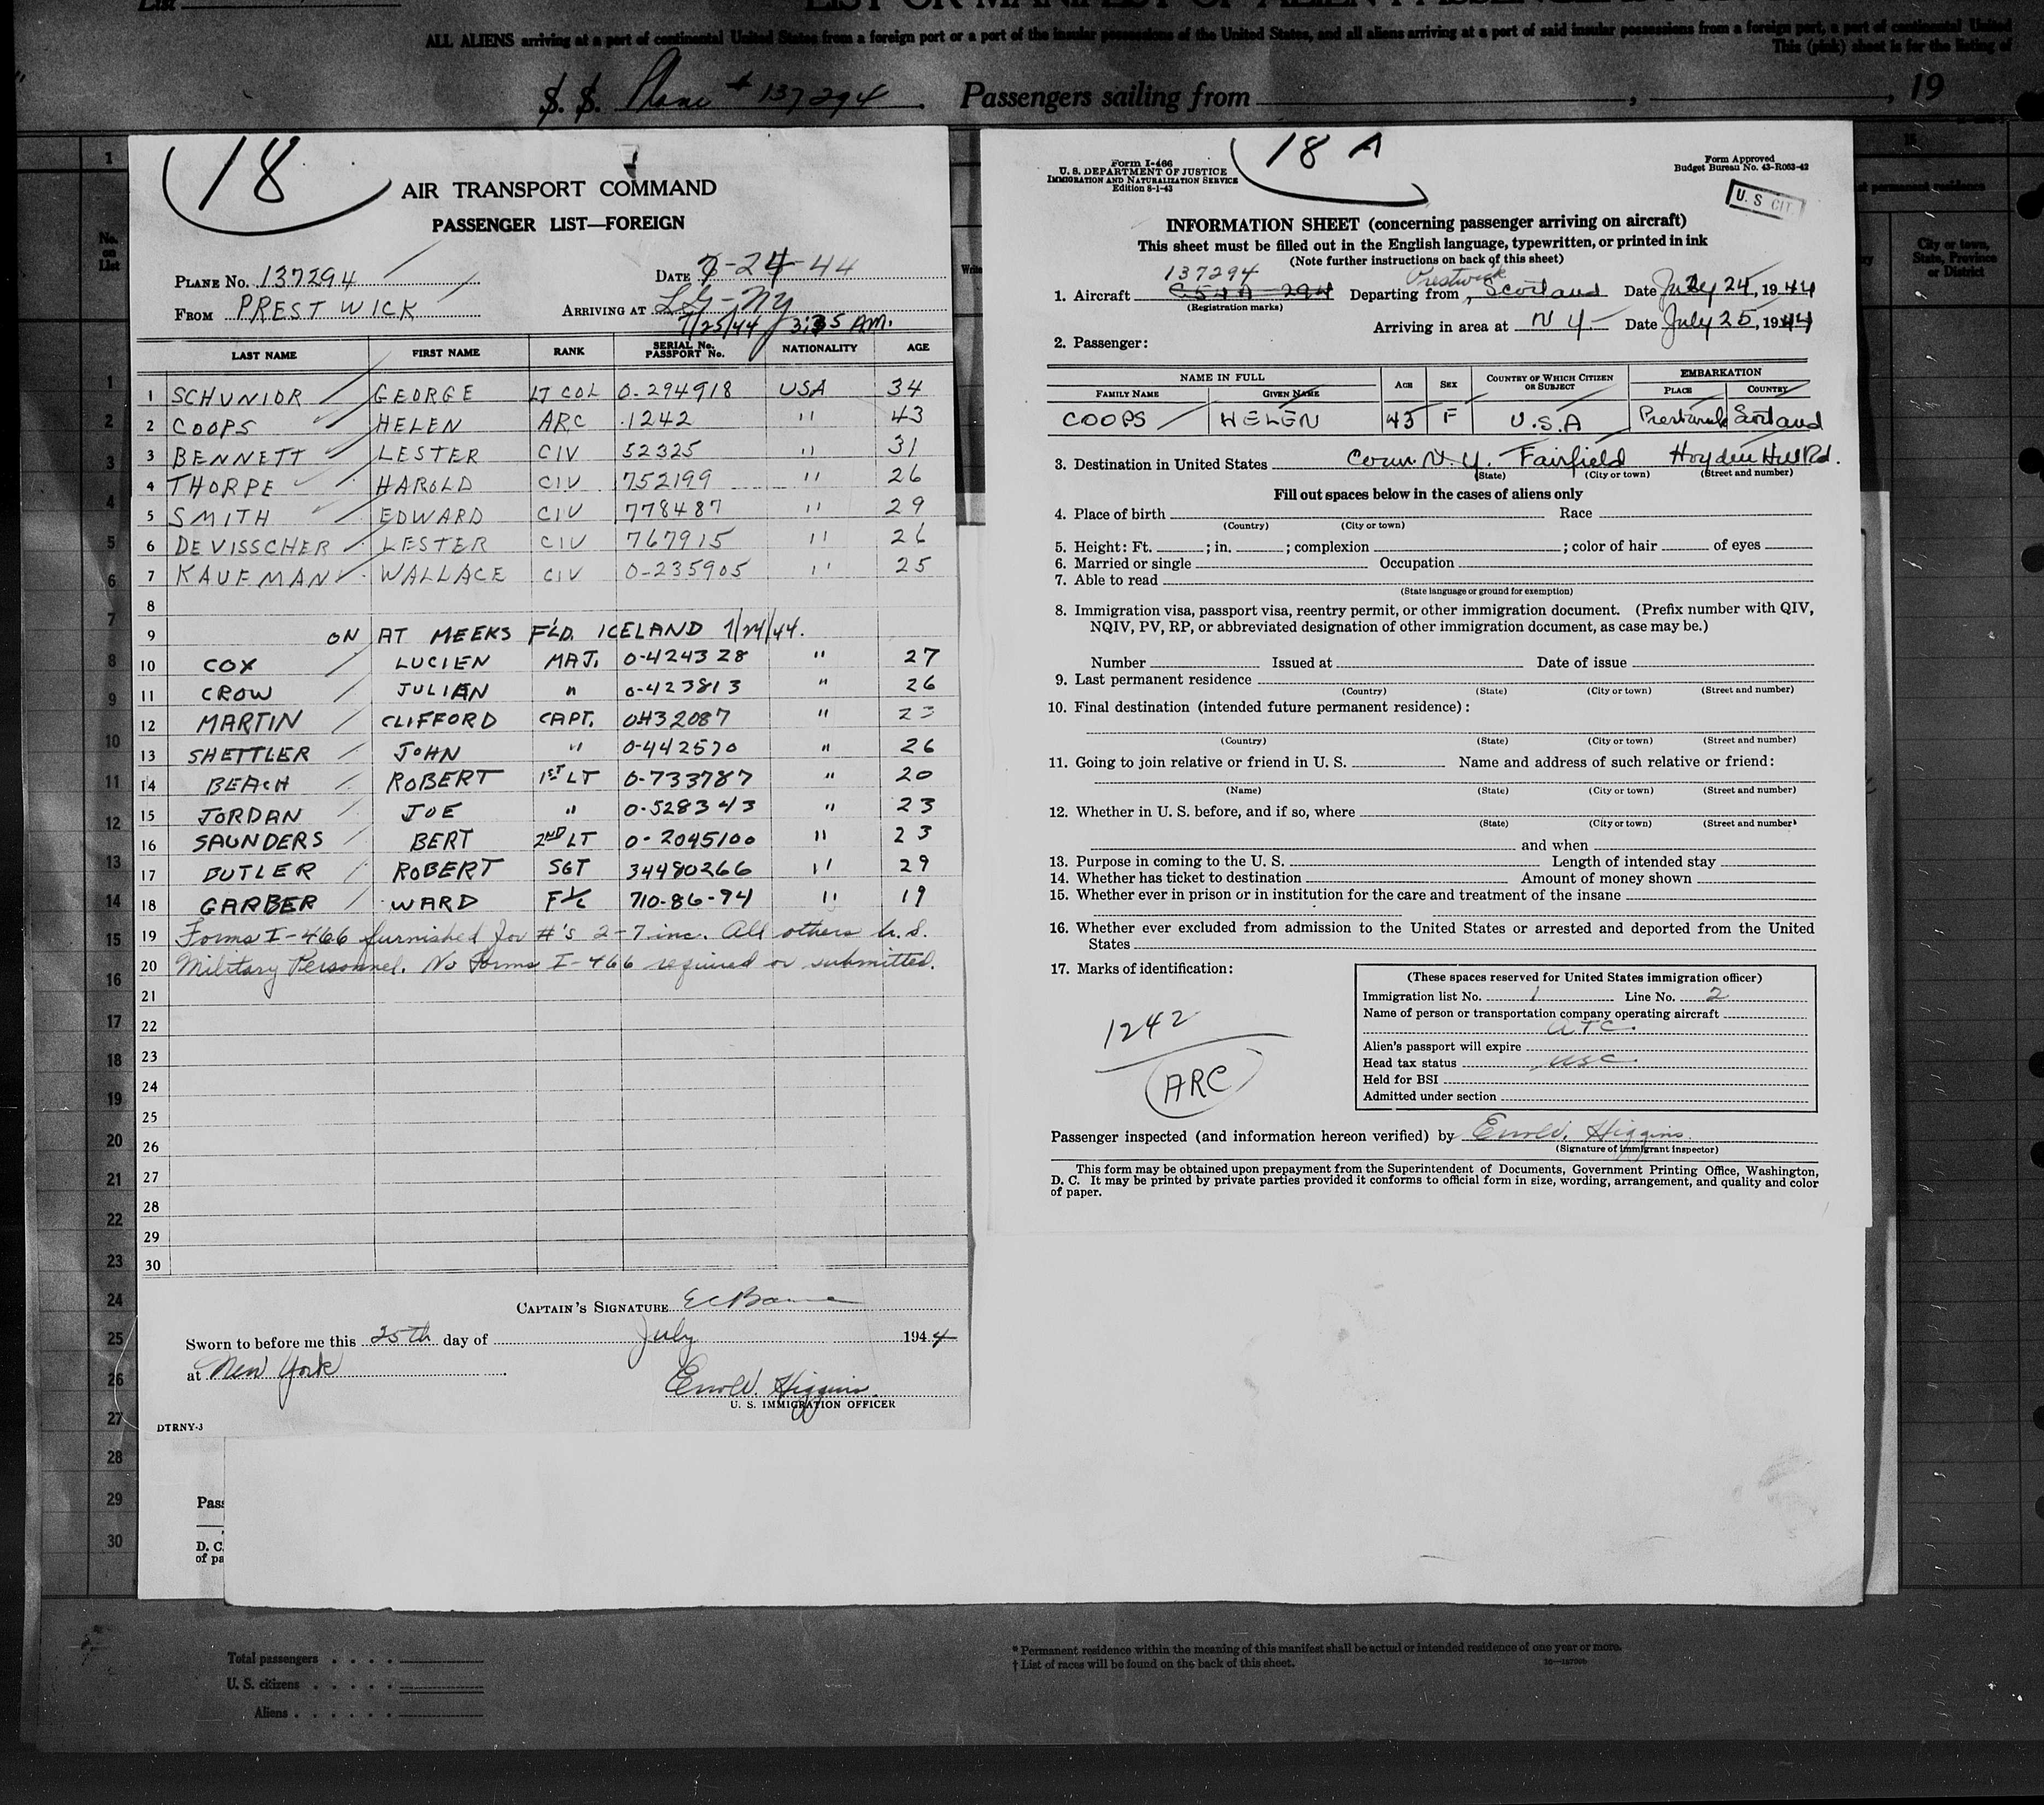 List
LIST OR MANIFEST OF ALIEN PASSENGERS
ALL ALIENS arriving at a port of continental United States from a foreign port or a port of the insular possessions of the United States, and all aliens arriving at a port of said insular possessions from a foreign port, a port of continental United
This (pink) sheet is for the listing of
S. S. Plane # 137294. Passengers sailing from , , 19
18
AIR TRANSPORT COMMAND
PASSENGER LIST—FOREIGN
PLANE No. 137294 DATE 7-24-44
FROM PRESTWICK ARRIVING AT LG-NY
7/25/44 3:35 AM.
LAST NAME FIRST NAME RANK SERIAL No. PASSPORT No. NATIONALITY AGE
1 SCHUNIOR GEORGE LT COL 0-294918 USA 34
2 COOPS HELEN ARC 1242 " 43
3 BENNETT LESTER CIV 52325 " 31
4 THORPE HAROLD CIV 752199 " 26
5 SMITH EDWARD CIV 778487 " 29
6 DE VISSCHER LESTER CIV 767915 " 26
7 KAUFMAN WALLACE CIV 0-235905 " 25
8
9 ON AT MEEKS FLD. ICELAND 7/24/44.
10 COX LUCIEN MAJ. 0-424328 " 27
11 CROW JULIEN " 0-423813 " 26
12 MARTIN CLIFFORD CAPT. 0432087 " 23
13 SHETTLER JOHN " 0-442570 " 26
14 BEACH ROBERT 1ST LT 0-733787 " 20
15 JORDAN JOE " 0-528343 " 23
16 SAUNDERS BERT 2ND LT 0-2045100 " 23
17 BUTLER ROBERT SGT 34480266 " 29
18 GARBER WARD F1/c 710-86-94 " 19
19 Forms I-466 furnished for #'s 2-7 inc. All others U.S.
20 Military Personnel. No Forms I-466 required or submitted.
21
22
23
24
25
26
27
28
29
30
CAPTAIN'S SIGNATURE
Sworn to before me this 25th day of July 1944
at New York
Errol W. Higgins.
U. S. IMMIGRATION OFFICER
DTRNY-3
18 A
Form I-466
U. S. DEPARTMENT OF JUSTICE
IMMIGRATION AND NATURALIZATION SERVICE
Edition 8-1-43
Form Approved
Budget Bureau No. 43-R063-42
U. S CIT.
INFORMATION SHEET (concerning passenger arriving on aircraft)
This sheet must be filled out in the English language, typewritten, or printed in ink
(Note further instructions on back of this sheet)
137294 Prestwick
1. Aircraft C54A-294 Departing from, Scotland Date July 24, 1944
(Registration marks)
Arriving in area at N Y. Date July 25, 1944
2. Passenger:
NAME IN FULL AGE SEX COUNTRY OF WHICH CITIZEN OR SUBJECT EMBARKATION
FAMILY NAME GIVEN NAME PLACE COUNTRY
COOPS HELEN 43 F U.S.A Prestwick Scotland
3. Destination in United States Conn. N.Y. Fairfield Hoyden Hill Rd.
(State) (City or town) (Street and number)
Fill out spaces below in the cases of aliens only
4. Place of birth Race
(Country) (City or town)
5. Height: Ft. ; in. ; complexion ; color of hair of eyes
6. Married or single Occupation
7. Able to read
(State language or ground for exemption)
8. Immigration visa, passport visa, reentry permit, or other immigration document. (Prefix number with QIV,
NQIV, PV, RP, or abbreviated designation of other immigration document, as case may be.)
Number Issued at Date of issue
9. Last permanent residence
(Country) (State) (City or town) (Street and number)
10. Final destination (intended future permanent residence):
(Country) (State) (City or town) (Street and number)
11. Going to join relative or friend in U. S. Name and address of such relative or friend:
(Name) (State) (City or town) (Street and number)
12. Whether in U. S. before, and if so, where
(State) (City or town) (Street and number)
and when
13. Purpose in coming to the U. S. Length of intended stay
14. Whether has ticket to destination Amount of money shown
15. Whether ever in prison or in institution for the care and treatment of the insane
16. Whether ever excluded from admission to the United States or arrested and deported from the United
States
17. Marks of identification:
1242
ARC
(These spaces reserved for United States immigration officer)
Immigration list No. 1 Line No. 2
Name of person or transportation company operating aircraft
ATC.
Alien's passport will expire
Head tax status USC
Held for BSI
Admitted under section
Passenger inspected (and information hereon verified) by Errol W. Higgins.
(Signature of immigrant inspector)
This form may be obtained upon prepayment from the Superintendent of Documents, Government Printing Office, Washington,
D. C. It may be printed by private parties provided it conforms to official form in size, wording, arrangement, and quality and color
of paper.
No. on List
City or town, State, Province or District
Pass
D. C.
of pa
Total passengers
U. S. citizens
Aliens
* Permanent residence within the meaning of this manifest shall be actual or intended residence of one year or more.
† List of races will be found on the back of this sheet.